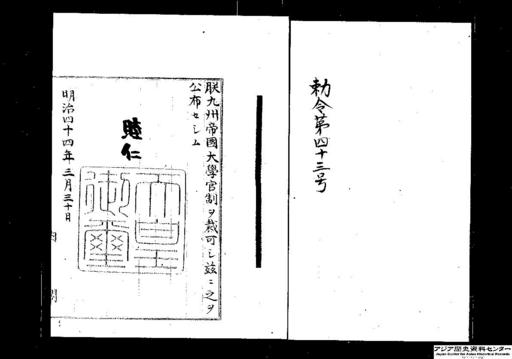 勅令第四十三号
朕九州帝國大學官制ヲ裁可シ茲ニ之ヲ
公布セシム
睦仁
天皇
御璽
明治四十四年三月三十日
内閣
アジア歴史資料センター
Japan Center for Asian Historical Records